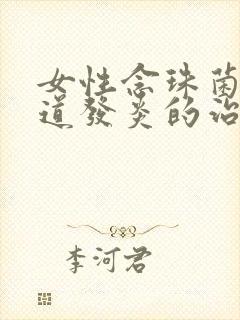 女性念珠菌
道發炎的治
李河君